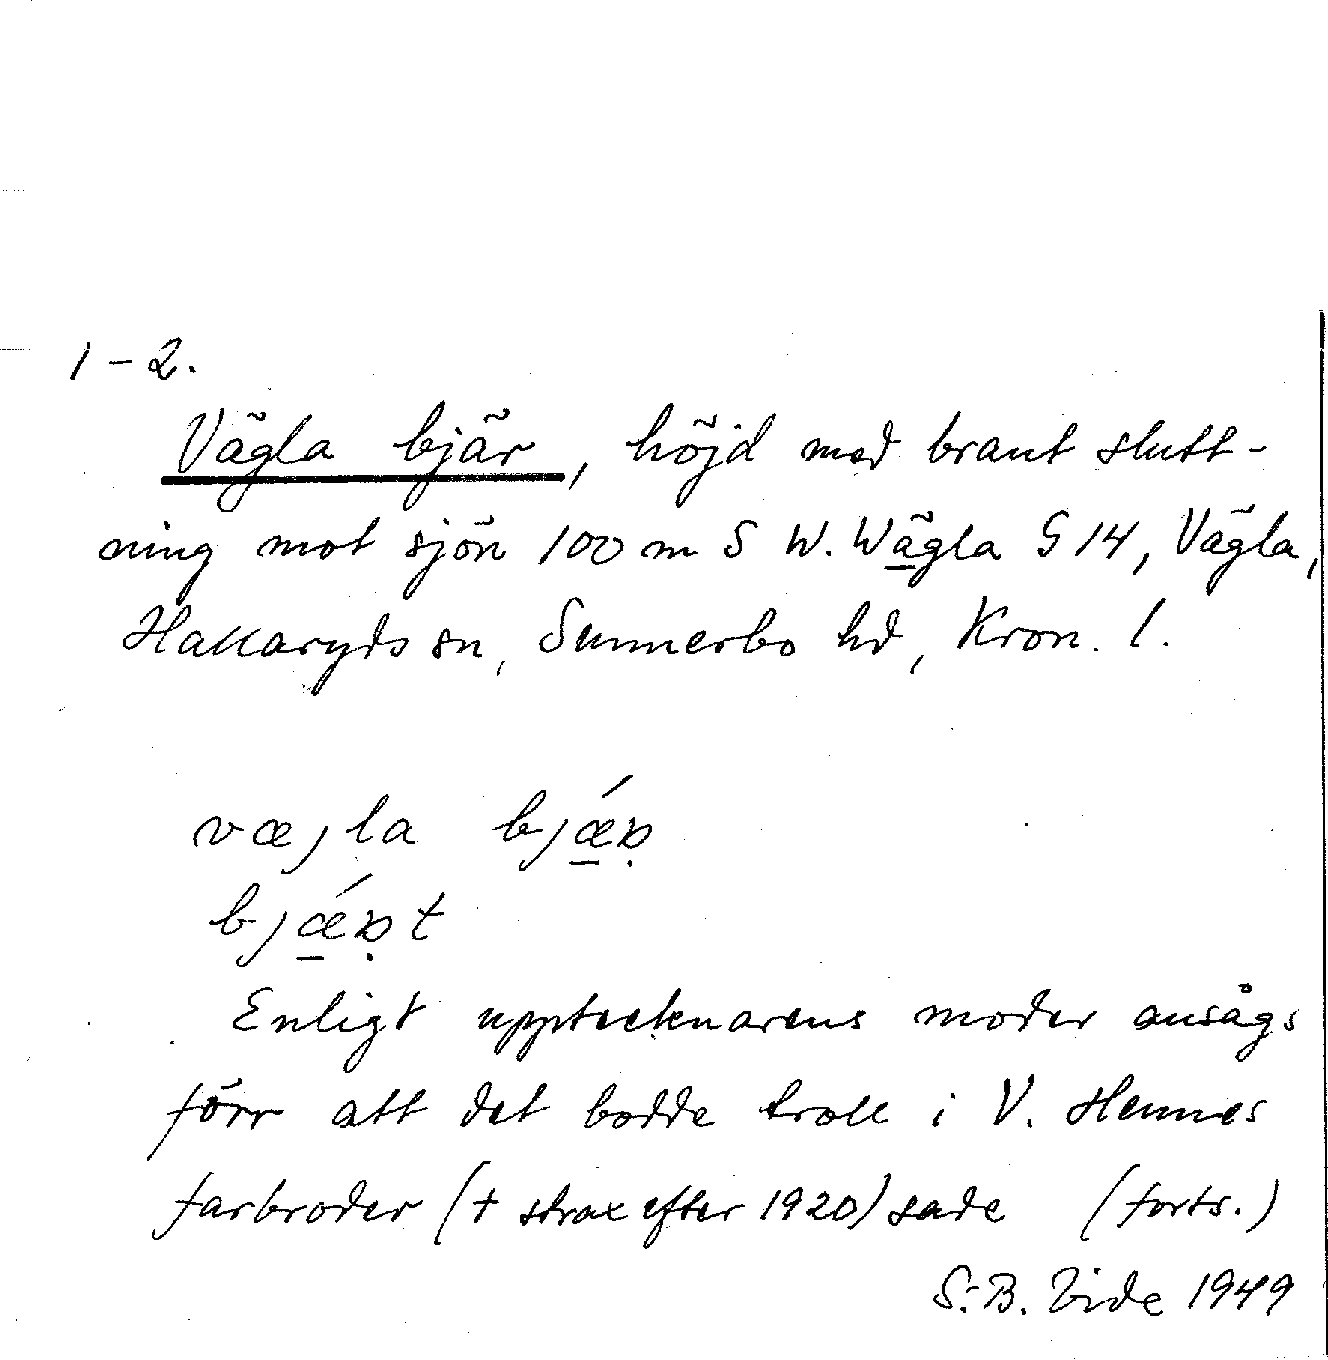 1-2.
Vägla bjär, höjd med brant slutt-
ning mot sjön 100 m S W. Wägla S 14, Vägla,
Hallaryds sn, Sunnerbo hd, Kron. l.
væjla bjǽ̲ṛ
bjǽ̲ṛt
Enligt upptecknarens moder ansågs
förr att det bodde troll i V. Hennes
farbroder († strax efter 1920) sade (forts.)
S.-B. Vide 1949